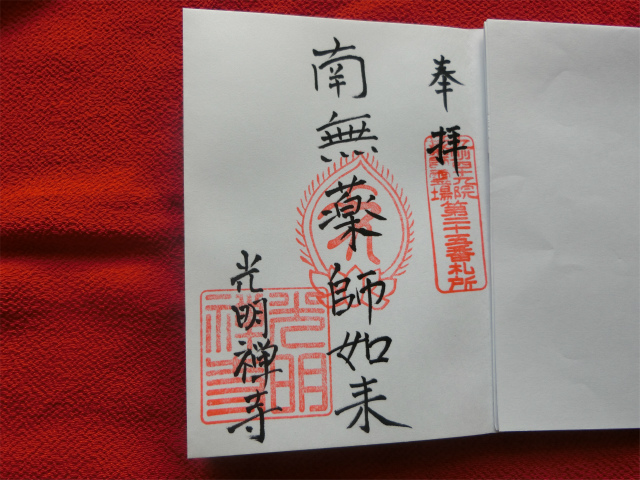 奉拝
第二十五番札所
南無薬師如来
光明禅寺
光明禅寺